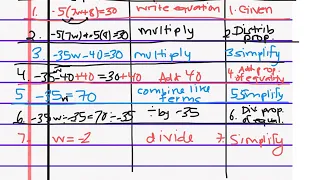 1. -5(7w+8)=30 write equation 1. Given
2. -5(7w)+-5(8)=30 multiply 2. Distrib prop.
3 -35w-40=30 multiply 3. simplify
4. -35w-40+40=30+40 Add 40 4. Add prop. of equality
5 -35w=70 combine like terms 5. Simplify
6. -35w÷-35=70÷-35 ÷ by -35 6. Div prop of equal.
7. w=-2 divide 7. Simplify